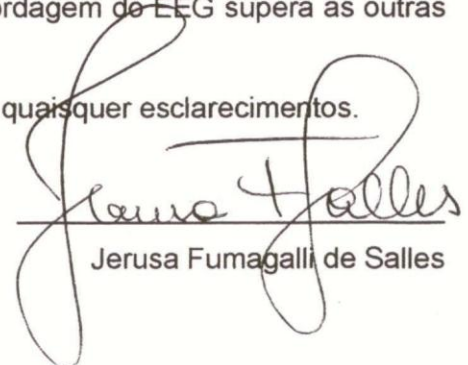 ordagem do EEG supera as outras
quaisquer esclarecimentos.
Jerusa F Salles
Jerusa Fumagalli de Salles